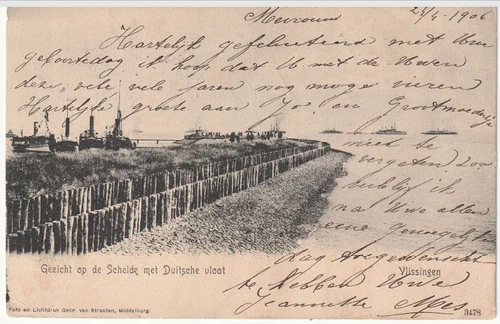 Mevrouw
24/4 - 1906
Hartelijk gefeliciteerd met Uw
geboortedag ik hoop dat U met de Uwen
deze, vele vele jaren nog moge vieren
Hartelijke groete aan Jo. en Grootmoedertje
niet te
vergeten zoo
verblijf ik
na Uwe allen
eene genoegelijke
dag toegewenscht
te hebben Uwe
Jeannette Mes
Gezicht op de Schelde met Duitsche vloot
Vlissingen
Foto en Lichtdruk Gebr. van Straaten, Middelburg
3478